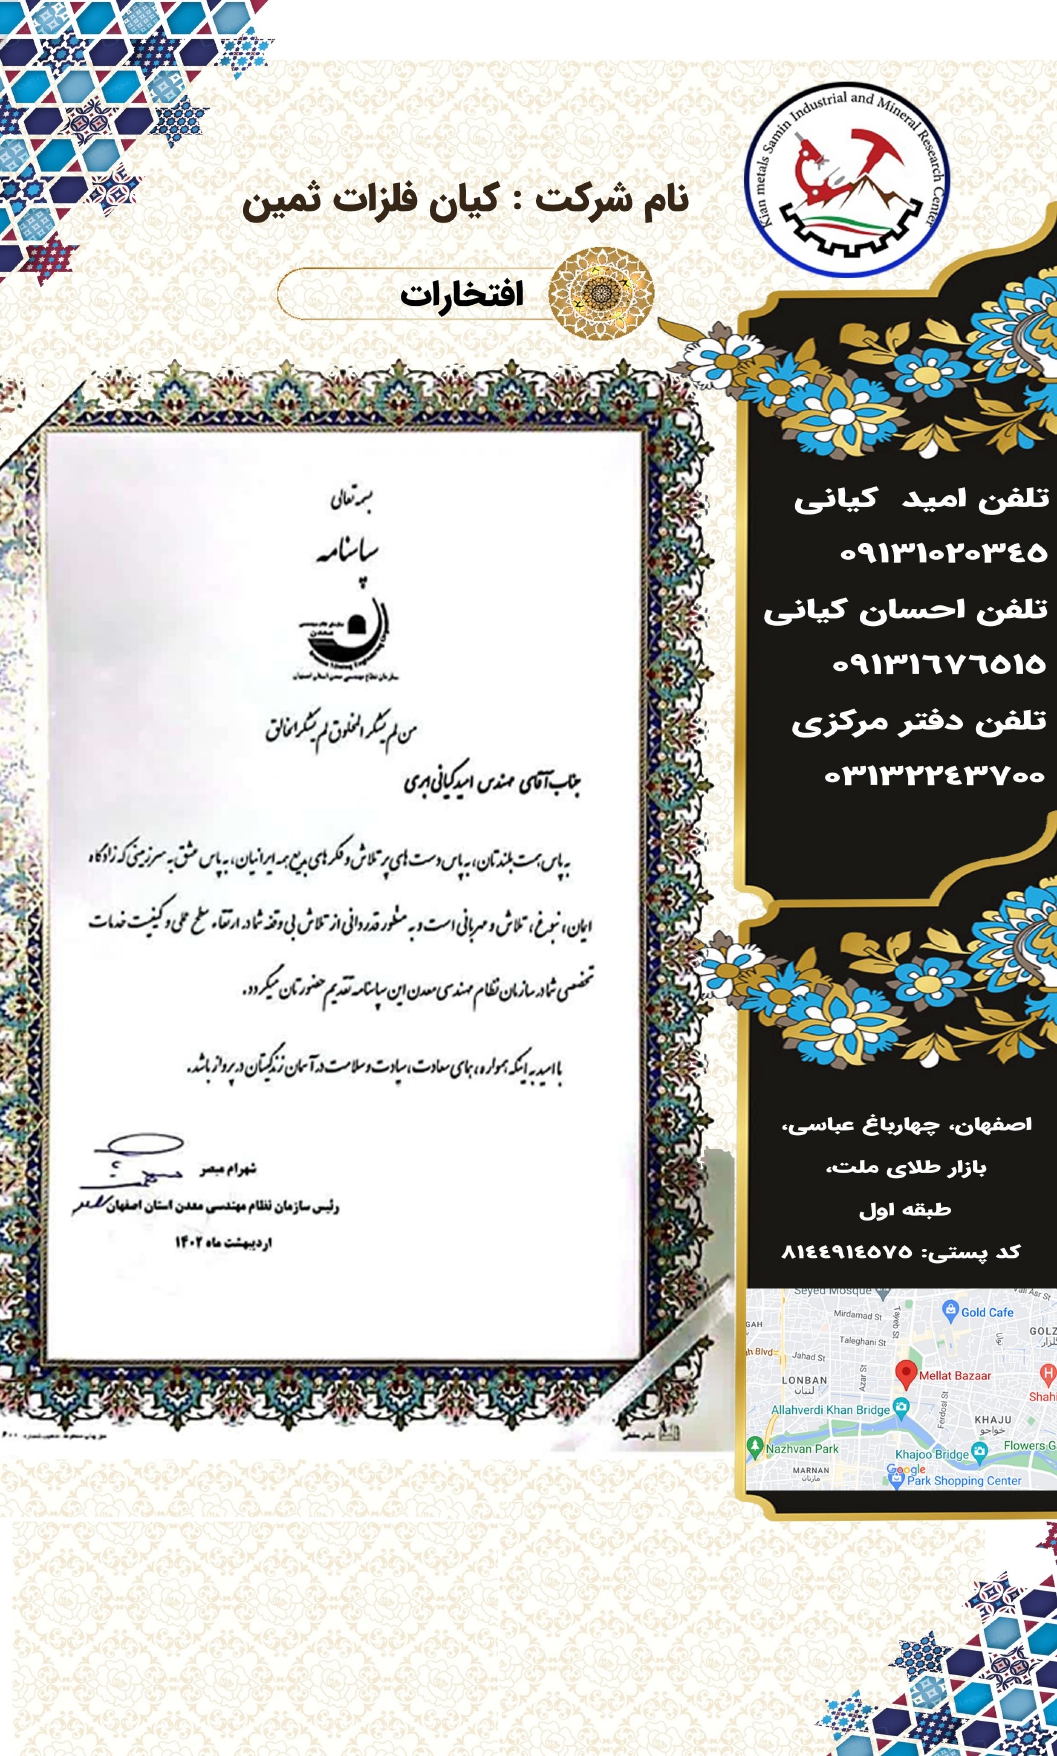 Kian metals Samin Industrial and Mineral Research Center
نام شرکت : کیان فلزات ثمین
افتخارات
بسمه تعالی
سپاسنامه
سازمان نظام مهندسی معدن استان اصفهان
من لم یشکر المخلوق لم یشکر الخالق
جناب آقای مهندس امید کیانی ابری
به پاس همت بلندتان، به پاس دست های پر تلاش و فکر های بدیع همه ایرانیان، به پاس عشق به سرزمینی که زادگاه
ایمان، نبوغ، تلاش و مهربانی است و به منظور قدردانی از تلاش بی وقفه شما در ارتقاء سطح علمی و کیفیت خدمات
تخصصی شما در سازمان نظام مهندسی معدن این سپاسنامه تقدیم حضورتان میگردد.
با امید به اینکه همواره، همای سعادت، سیادت و سلامت در آسمان زندگیتان در پرواز باشد.
شهرام مبصر
رئیس سازمان نظام مهندسی معدن استان اصفهان
اردیبهشت ماه ۱۴۰۲
تلفن امید کیانی
۰۹۱۳۱۰۲۰۳۴۵
تلفن احسان کیانی
۰۹۱۳۱۶۷۶۵۱۵
تلفن دفتر مرکزی
۰۳۱۳۲۲۴۳۷۰۰
اصفهان، چهارباغ عباسی،
بازار طلای ملت،
طبقه اول
کد پستی: ۸۱۴۴۹۱۴۵۷۵
Seyed Mosque
Vali Asr St
Mirdamad St
Tayeb St
Gold Cafe
Taleghani St
GOLZ
گلزار
Jahad St
Azar St
LONBAN
لنبان
Mellat Bazaar
Shahi
Allahverdi Khan Bridge
Ferdosi St
KHAJU
خواجو
Nazhvan Park
Khajoo Bridge
Flowers G
MARNAN
مارنان
Google
Park Shopping Center